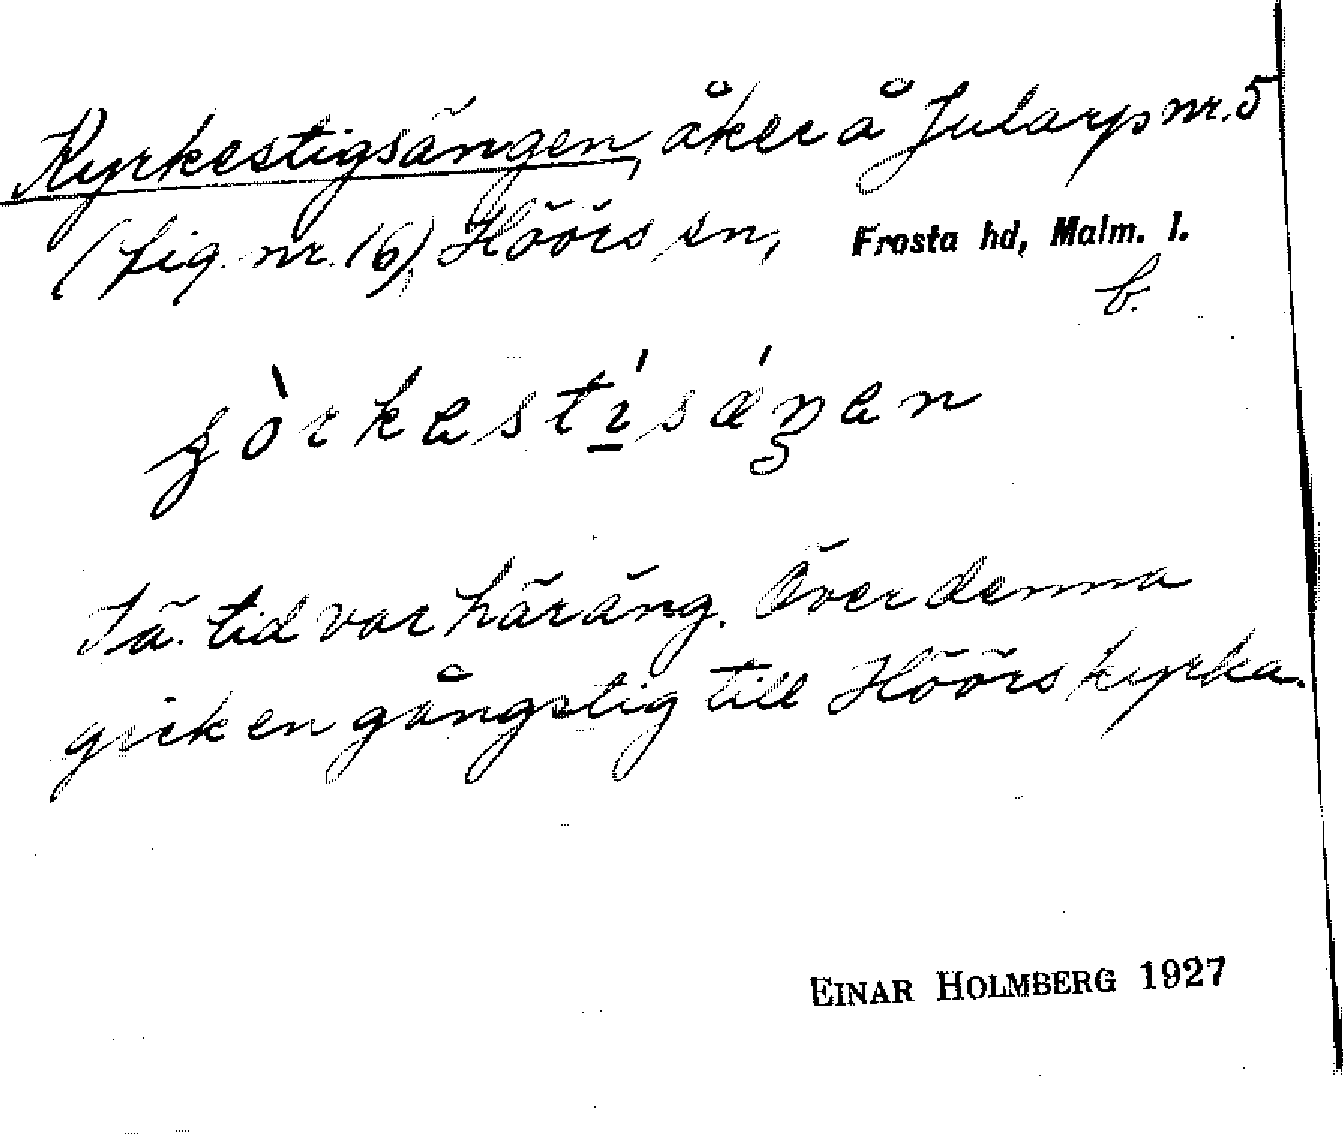 Kyrkestigsängen, åker å Jularp nr. 5
(fig. nr. 16), Höörs sn, Frosta hd, Malm. l.
b.
I ä. tid var här äng. Över denna
gick en gångstig till Höörs kyrka.
EINAR HOLMBERG 1927